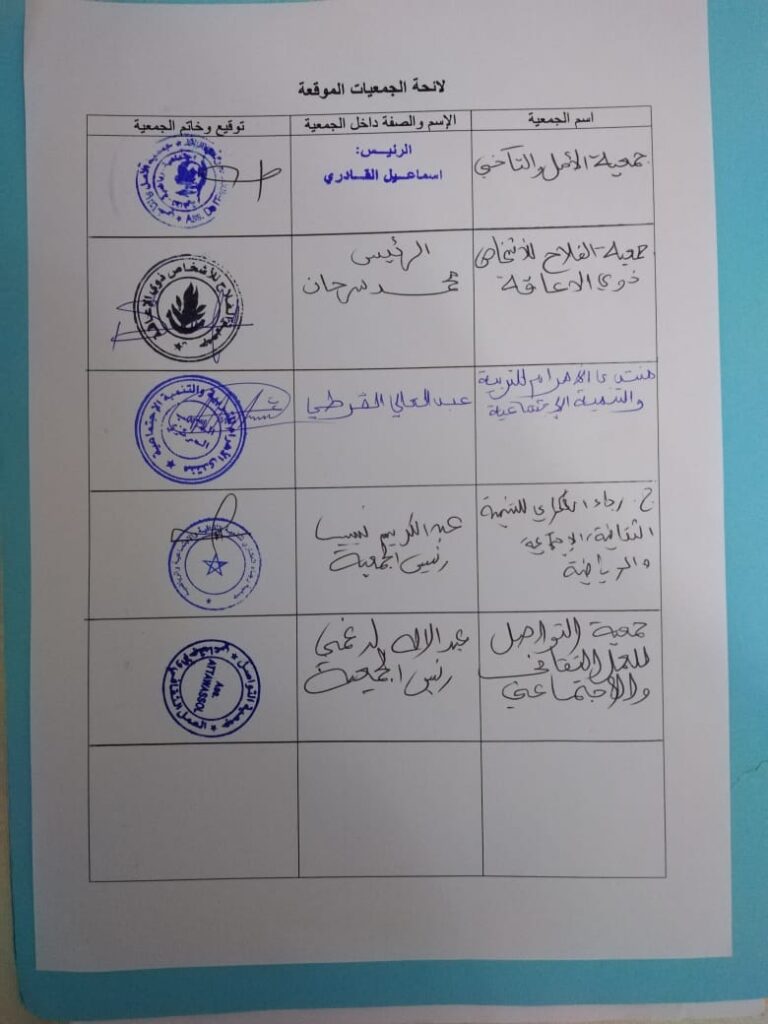 لائحة الجمعيات الموقعة
اسم الجمعية
الإسم والصفة داخل الجمعية
توقيع وخاتم الجمعية
جمعية الأمل والتآخي
الرئيس:
اسماعيل القادري
جمعية الفلاح للأشخاص
ذوي الاعاقة
الرئيس
محمد سرحان
جمعية الفلاح للأشخاص ذوي الإعاقة
منتدى الأهرام للتربية
والتنمية الإجتماعية
عبد العالي القرطبي
منتدى الأهرام للتربية والتنمية الإجتماعية
ج. رجاء للتنمية
الثقافية والإجتماعية
والرياضية
عبد الكريم
رئيس الجمعية
جمعية التواصل
للعمل الثقافي
والاجتماعي
عبد الاله
رئيس الجمعية
جمعية التواصل
العمل الثقافي والاجتماعي
Ass.
ATTAWASSOL